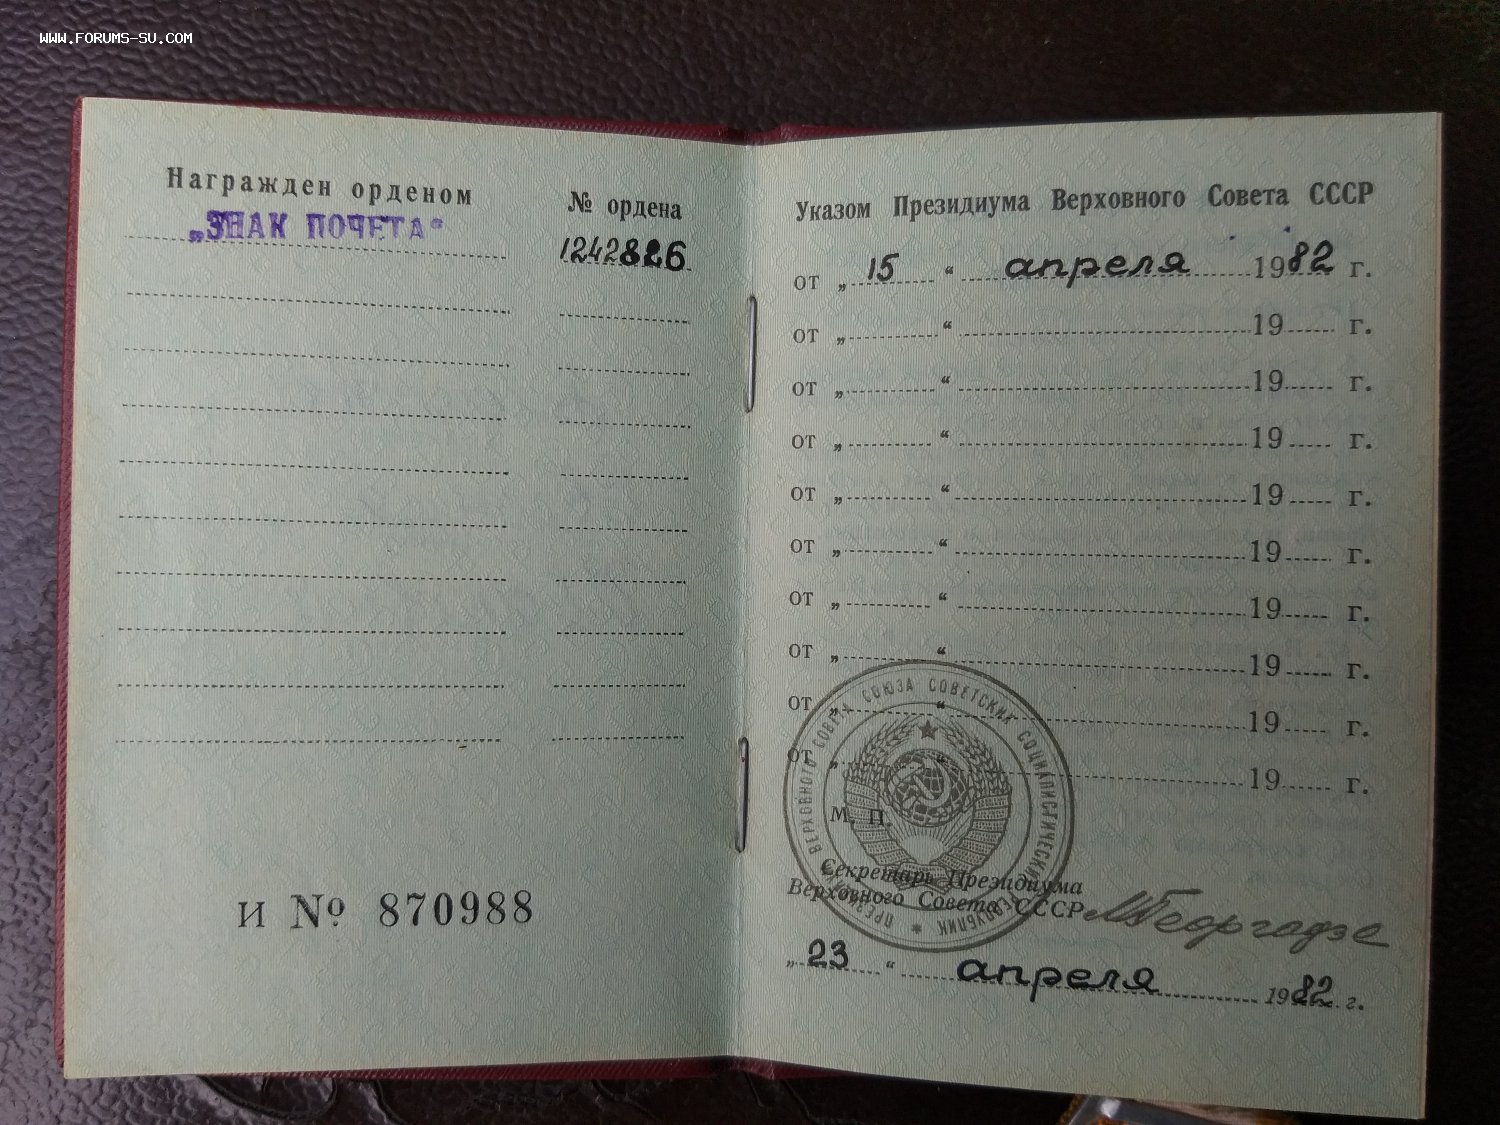 WWW.FORUMS-SU.COM
Награжден орденом
№ ордена
„ЗНАК ПОЧЕТА“
1242826
И № 870988
Указом Президиума Верховного Совета СССР
от „ 15 “ апреля 1982 г.
от „ “ 19 г.
от „ “ 19 г.
от „ “ 19 г.
от „ “ 19 г.
от „ “ 19 г.
от „ “ 19 г.
от „ “ 19 г.
от „ “ 19 г.
от „ “ 19 г.
ПРЕЗИДИУМ ВЕРХОВНОГО СОВЕТА СОЮЗА СОВЕТСКИХ СОЦИАЛИСТИЧЕСКИХ РЕСПУБЛИК
М. П.
Секретарь Президиума
Верховного Совета СССР
МГеоргадзе
„ 23 “ апреля 1982 г.